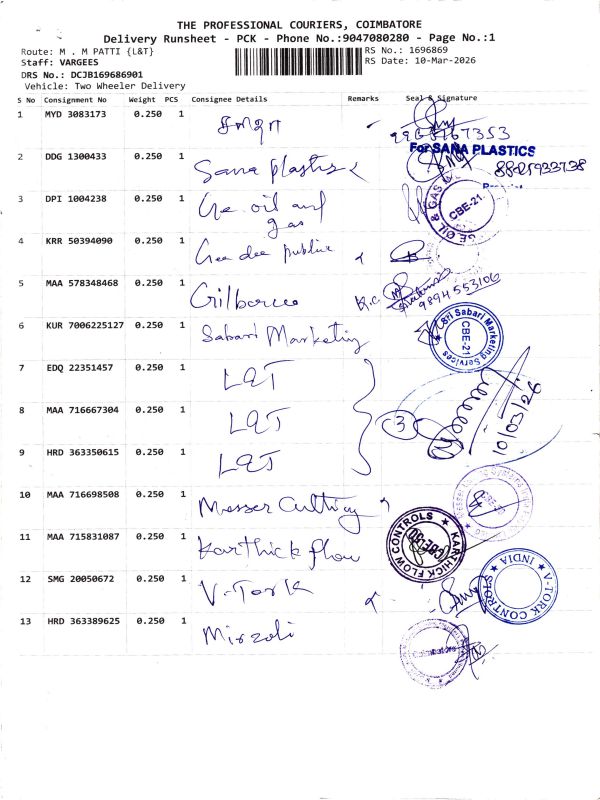 THE PROFESSIONAL COURIERS, COIMBATORE
Delivery Runsheet - PCK - Phone No.:9047080280 - Page No.:1
Route: M . M PATTI {L&T}
RS No.: 1696869
Staff: VARGEES
RS Date: 10-Mar-2026
DRS No.: DCJB169686901
Vehicle: Two Wheeler Delivery
S No Consignment No Weight PCS Consignee Details Remarks Seal & Signature
1 MYD 3083173 0.250 1
For SANA PLASTICS
2 DDG 1300433 0.250 1 Sana plastis
3 DPI 1004238 0.250 1 Ge oil and
gas
GE OIL & GAS CBE-21.
4 KRR 50394090 0.250 1 Gee dee public
5 MAA 578348468 0.250 1 Gilbarco
9894553106
6 KUR 7006225127 0.250 1 Sabari Marketing
Sri Sabari Marketing Services CBE-21
7 EDQ 22351457 0.250 1 L&T
8 MAA 716667304 0.250 1 L&T
3
10/03/26
9 HRD 363350615 0.250 1 L&T
10 MAA 716698508 0.250 1 Messer Cutting
11 MAA 715831087 0.250 1 Karthick flow
KARTHICK FLOW CONTROLS
12 SMG 20050672 0.250 1 V-Tork
V-TORK CONTROLS INDIA
13 HRD 363389625 0.250 1